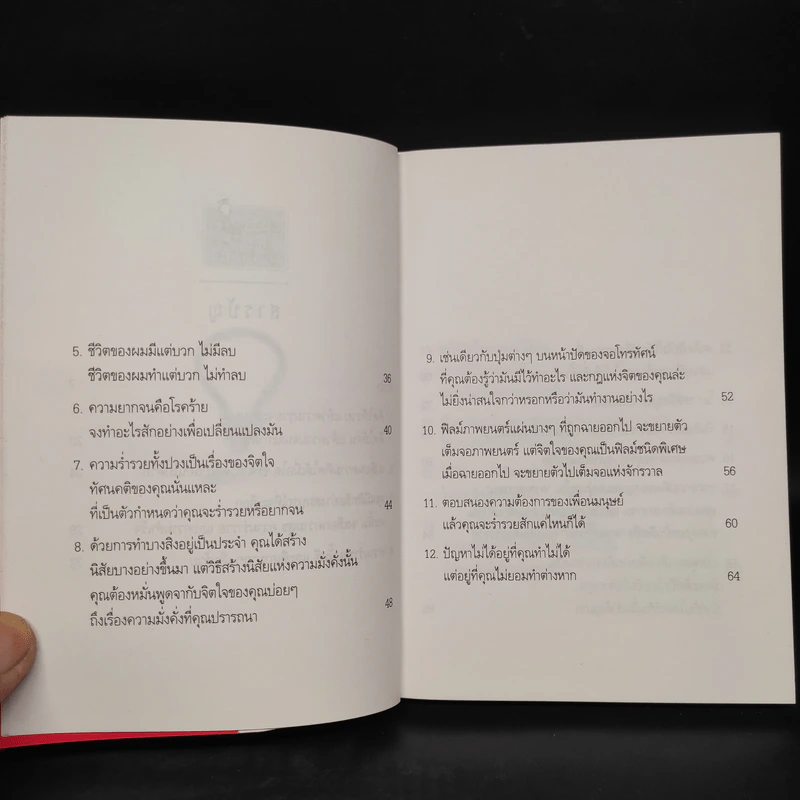 5. ชีวิตของผมมีแต่บวก ไม่มีลบ
ชีวิตของผมทำแต่บวก ไม่ทำลบ 36
6. ความยากจนคือโรคร้าย
จงทำอะไรสักอย่างเพื่อเปลี่ยนแปลงมัน 40
7. ความร่ำรวยทั้งปวงเป็นเรื่องของจิตใจ
ทัศนคติของคุณนั่นแหละ
ที่เป็นตัวกำหนดว่าคุณจะร่ำรวยหรือยากจน 44
8. ด้วยการทำบางสิ่งอยู่เป็นประจำ คุณได้สร้าง
นิสัยบางอย่างขึ้นมา แต่วิธีสร้างนิสัยแห่งความมั่งคั่งนั้น
คุณต้องหมั่นพูดจากับจิตใจของคุณบ่อยๆ
ถึงเรื่องความมั่งคั่งที่คุณปรารถนา 48
9. เช่นเดียวกับปุ่มต่างๆ บนหน้าปัดของจอโทรทัศน์
ที่คุณต้องรู้ว่ามันมีไว้ทำอะไร และกฎแห่งจิตของคุณล่ะ
ไม่ยิ่งน่าสนใจกว่าหรอกหรือว่ามันทำงานอย่างไร 52
10. ฟิลม์ภาพยนตร์แผ่นบางๆ ที่ถูกฉายออกไป จะขยายตัว
เต็มจอภาพยนตร์ แต่จิตใจของคุณเป็นฟิลม์ชนิดพิเศษ
เมื่อฉายออกไป จะขยายตัวไปเต็มจอแห่งจักรวาล 56
11. ตอบสนองความต้องการของเพื่อนมนุษย์
แล้วคุณจะร่ำรวยสักแค่ไหนก็ได้ 60
12. ปัญหาไม่ได้อยู่ที่คุณทำไม่ได้
แต่อยู่ที่คุณไม่ยอมทำต่างหาก 64